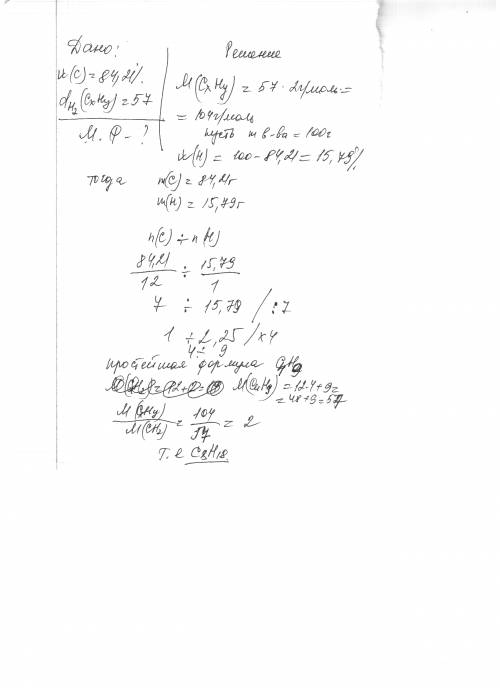 Дано:
w(C) = 84,21%
dH₂(CxHy) = 57
М. Ф - ?
Решение
M(CxHy) = 57 · 2г/моль =
= 104г/моль
пусть m в-ва = 100г
w(H) = 100 - 84,21 = 15,79%
тогда m(C) = 84,21г
m(H) = 15,79г
n(C) ÷ n(H)
84,21/12 ÷ 15,79/1
7 ÷ 15,79 / :7
1 ÷ 2,25 / ×4
4 ÷ 9
простейшая формула C4H9
M(C4H9) = 12·4+9=
= 48+9=57
M(CxHy)/M(CH₂) = 104/57 = 2
т. е C8H18